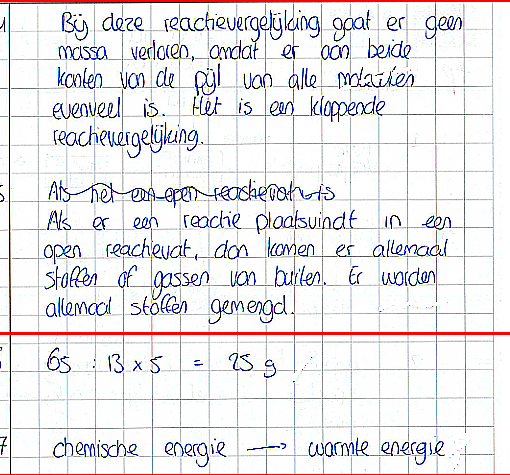 Bij deze reactievergelijking gaat er geen
massa verloren, omdat er aan beide
kanten van de pijl van alle
evenveel is. Het is een kloppende
reactievergelijking.
Als het een open reactievat is
Als er een reactie plaatsvindt in een
open reactievat, dan komen er allemaal
stoffen of gassen van buiten. Er worden
allemaal stoffen gemengd.
65 : 13 x 5 = 25 g
7 chemische energie → warmte energie